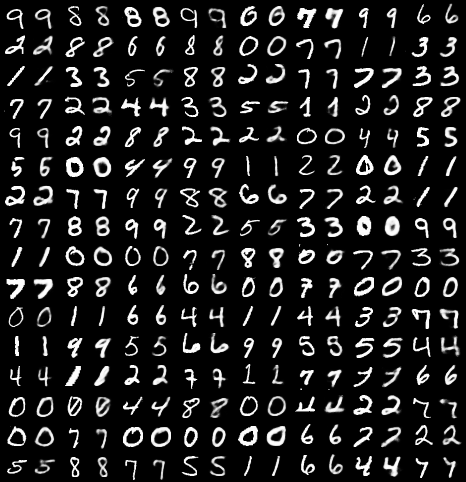 9 9 8 8 8 8 9 9 0 0 7 7 9 9 6 6
2 2 8 8 6 6 8 8 0 0 7 7 1 1 3 3
1 1 3 3 5 5 8 8 2 2 7 7 7 7 3 3
7 7 2 2 4 4 3 3 5 5 1 1 2 2 8 8
9 9 2 2 8 8 2 2 2 2 0 0 4 4 5 5
5 5 0 0 4 4 9 9 1 1 2 2 0 0 1 1
2 2 7 7 9 9 8 8 6 6 7 7 2 2 1 1
7 7 8 8 9 9 2 2 5 5 3 3 0 0 9 9
1 1 0 0 0 0 7 7 8 8 0 0 7 7 3 3
7 7 8 8 6 6 6 6 0 0 7 7 0 0 0 0
0 0 1 1 6 6 4 4 1 1 4 4 3 3 7 7
1 1 9 9 5 5 6 6 9 9 5 5 5 5 4 4
4 4 1 1 2 2 7 7 1 1 7 7 7 7 6 6
0 0 0 0 4 4 8 8 0 0 4 4 2 2 7 7
0 0 7 7 0 0 0 0 0 0 6 6 7 7 2 2
5 5 8 8 7 7 5 5 1 1 6 6 4 4 7 7